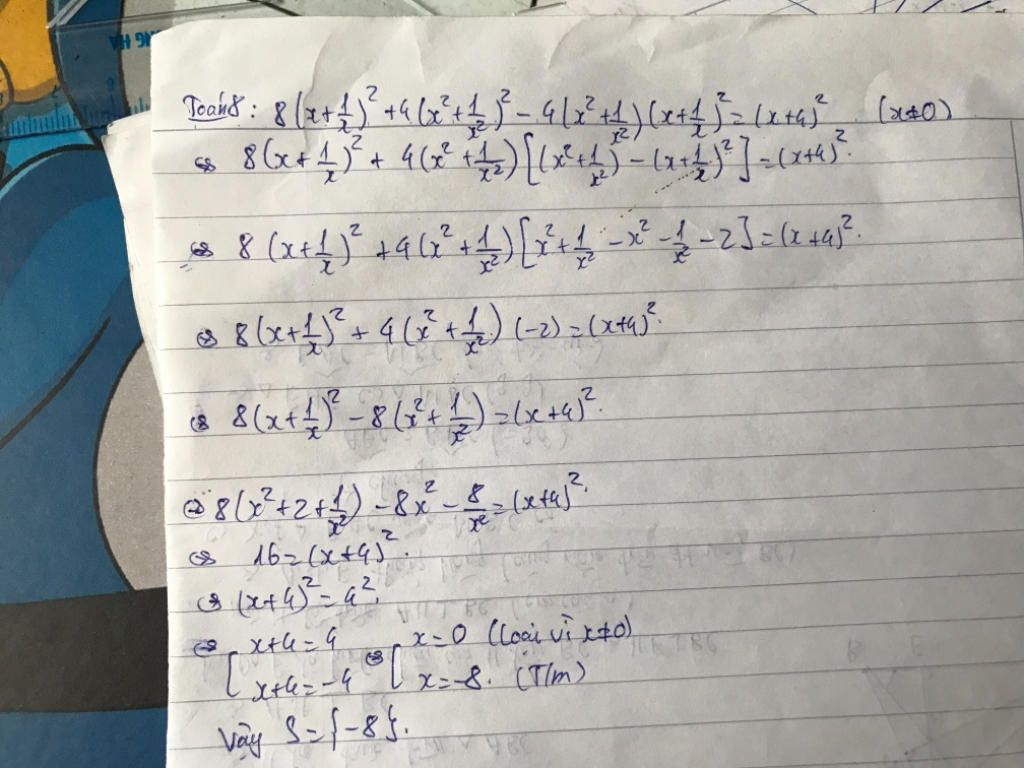 Toán 8: 8(x+1/x)² + 4(x²+1/x²)² - 4(x²+1/x²)(x+1/x)² = (x+4)² (x≠0)
⇔ 8(x+1/x)² + 4(x²+1/x²)[(x²+1/x²) - (x+1/x)²] = (x+4)².
⇔ 8(x+1/x)² + 4(x²+1/x²)[x²+1/x² - x² - 1/x² - 2] = (x+4)².
⇔ 8(x+1/x)² + 4(x²+1/x²)(-2) = (x+4)².
⇔ 8(x+1/x)² - 8(x²+1/x²) = (x+4)².
⇔ 8(x²+2+1/x²) - 8x² - 8/x² = (x+4)².
⇔ 16 = (x+4)².
⇔ (x+4)² = 4².
⇔ [x+4=4 ⇔ [x=0 (loại vì x≠0)
x+4=-4 x=-8. (T/m)
Vậy S={-8}.